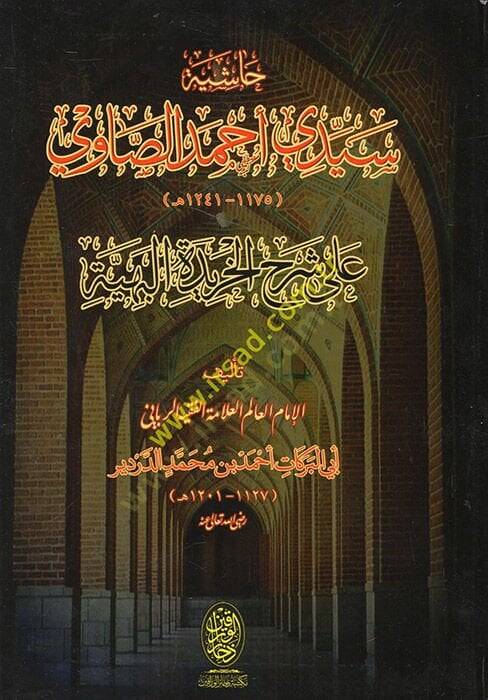 حاشية
سيدي أحمد الصاوي
(١١٧٥-١٢٤١هـ)
على شرح الخريدة البهية
تأليف
الإمام العالم العلامة الفقيه الرباني
أبي البركات أحمد بن محمد الدردير
(١١٢٧-١٢٠١هـ)
رضي الله تعالى عنه